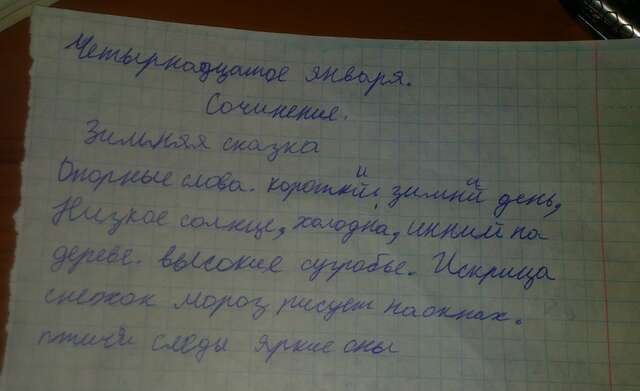 Четырнадцатое января.
Сочинение.
Зимняя сказка
Опорные слова. короткий, зимний день,
Низкое солнце, холодна, инний на
дереве. высокие сугробье. Искрица
снежок мороз рисует наокнах.
птичй следы яркие сны